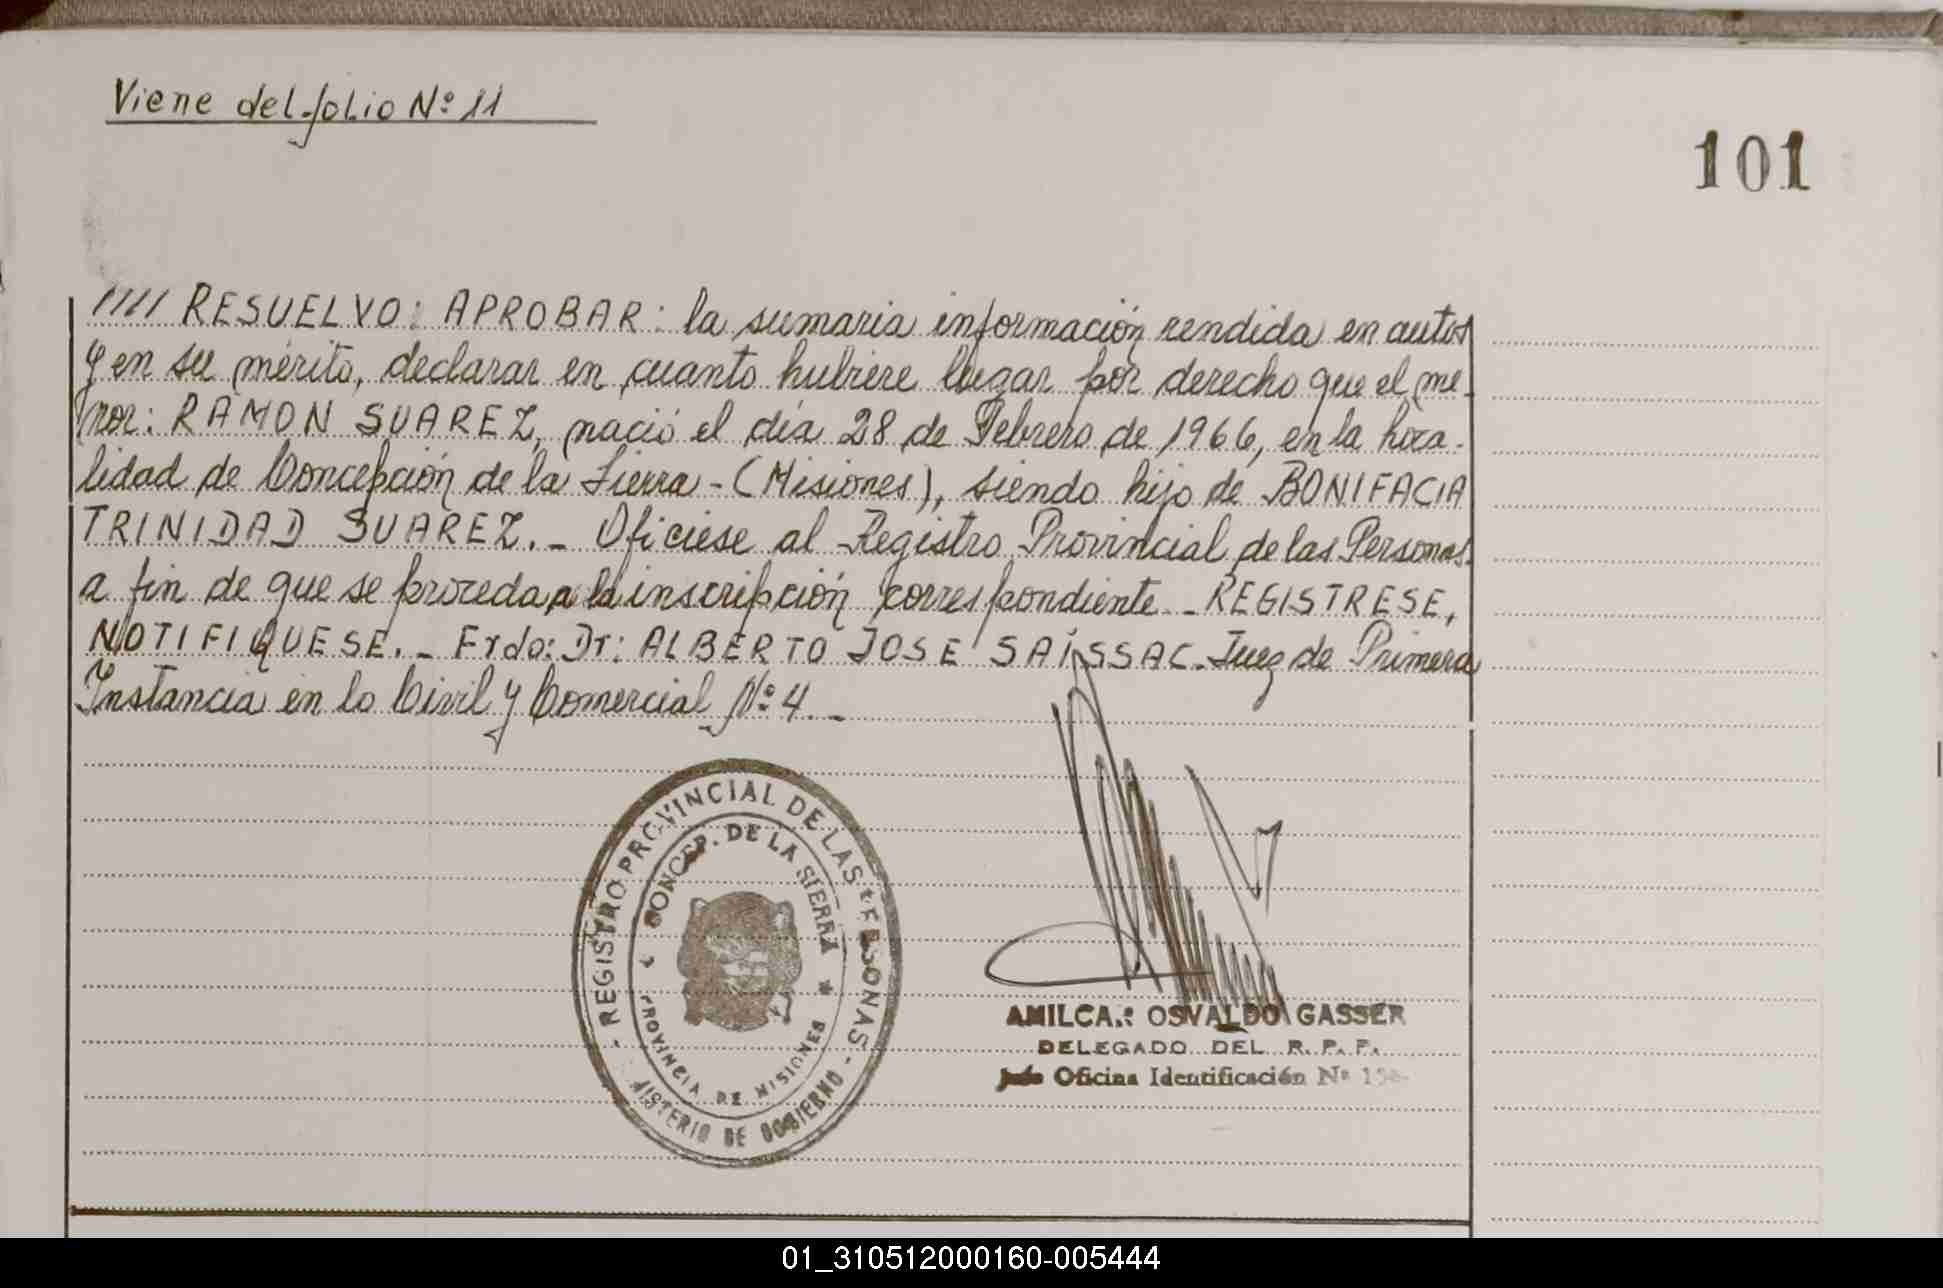 Viene del folio Nº 11
101
//// RESUELVO: APROBAR: la sumaria información rendida en autos
y en su mérito, declarar en cuanto hubiere lugar por derecho que el me-
nor: RAMON SUAREZ, nació el día 28 de Febrero de 1966, en la loca-
lidad de Concepción de la Sierra - (Misiones), siendo hijo de BONIFACIA
TRINIDAD SUAREZ. - Ofíciese al Registro Provincial de las Personas
a fin de que se proceda a la inscripción correspondiente - REGISTRESE,
NOTIFIQUESE. - Frdo: Dr: ALBERTO JOSE SAÍSSAC - Juez de Primera
Instancia en lo Civil y Comercial Nº 4. -
- REGISTRO PROVINCIAL DE LAS PERSONAS -
CONCEP. DE LA SIERRA
PROVINCIA DE MISIONES
NISTERIO DE GOBIERNO
AMILCAR OSVALDO GASSER
DELEGADO DEL R. P. P.
Jefe Oficina Identificación Nº
01_310512000160-005444